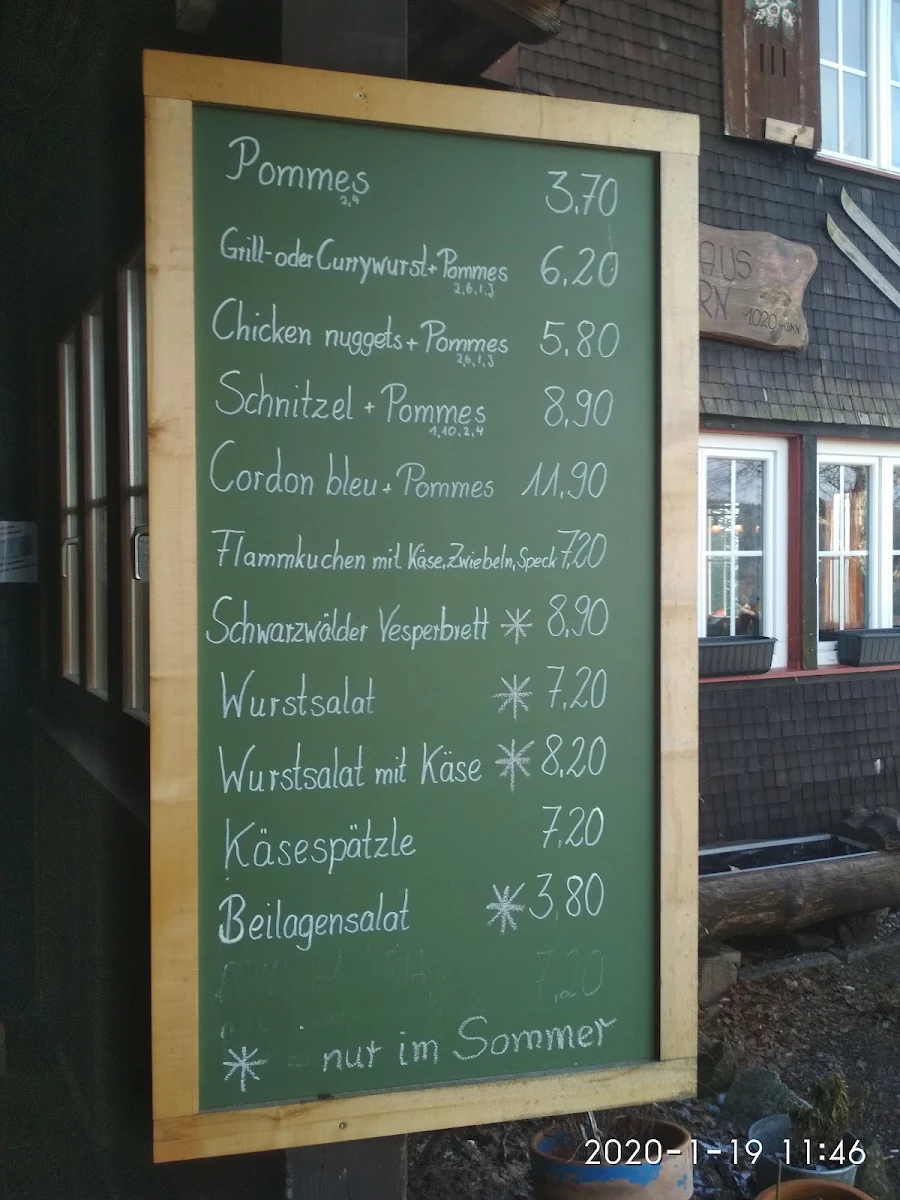 Pommes 3,70
2,4
Grill- oder Currywurst + Pommes 6,20
2,6,1,J
Chicken nuggets + Pommes 5,80
2,6,1,J
Schnitzel + Pommes 8,90
1,10,2,4
Cordon bleu + Pommes 11,90
Flammkuchen mit Käse, Zwiebeln, Speck 7,20
Schwarzwälder Vesperbrett * 8,90
Wurstsalat * 7,20
Wurstsalat mit Käse * 8,20
Käsespätzle 7,20
Beilagensalat * 3,80
7,20
* - nur im Sommer
AUS
RN 1020
2020-1-19 11:46